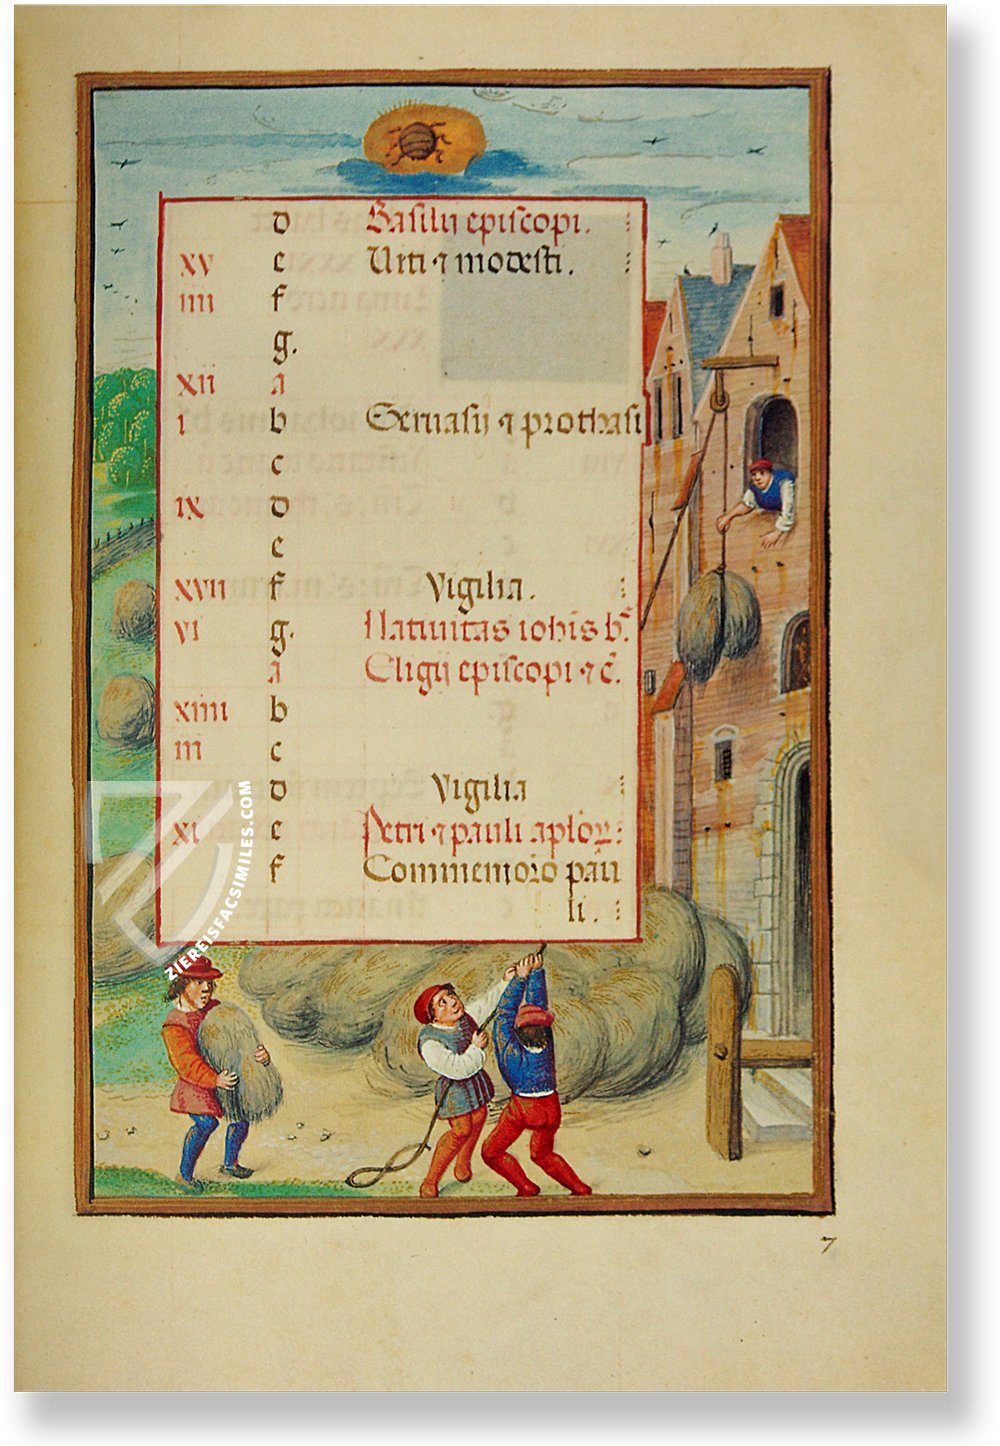 d Basilij episcopi.
xv e Viti ⁊ modesti.
iiii f
g.
xii a
i b Geruasij ⁊ prothasi
c
ix d
e
xvii f Vigilia.
vi g. Natiuitas ioh̄is b.
a Eligij episcopi ⁊ c̄.
xiiii b
iii c
d Vigilia
xi e Petri ⁊ pauli aploꝝ:
f Commemor̄o pau
li.
7
ZIEREISFACSIMILES.COM